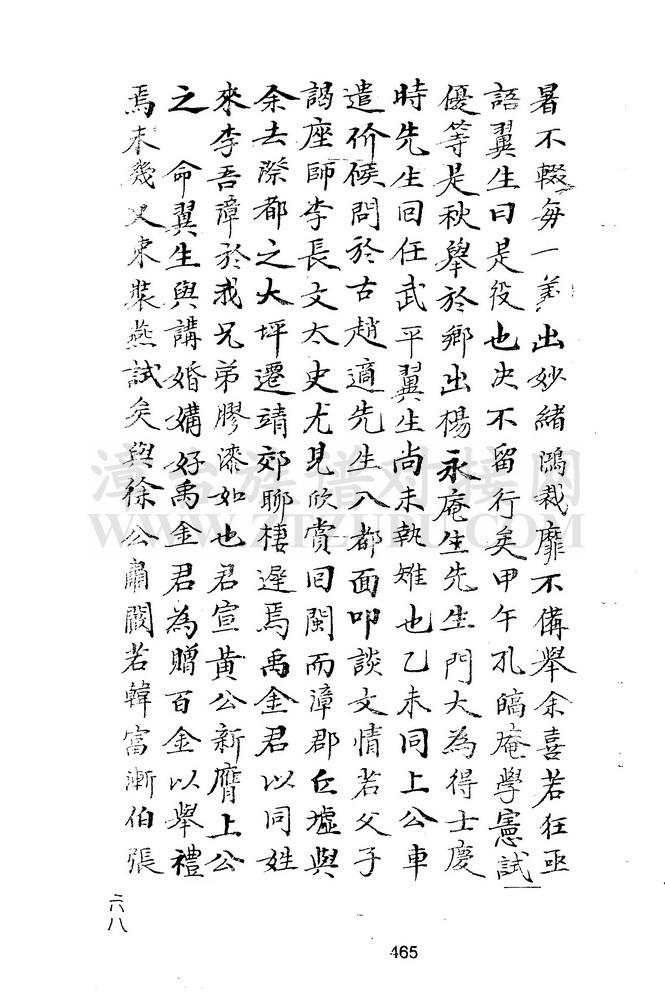 暑不輟每一義出妙緒鴻裁靡不備舉余喜若狂亟
語翼生曰是役也決不留行矣甲午孔皜庵學憲試
優等是秋舉於鄉出楊永庵生先生門大為得士慶
時先生回任武平翼生尚未執雉也乙未同上公車
遣价候問於古趙適先生入都面叩談文情若父子
謁座師李長文太史尤見欣賞回閩而漳郡丘墟與
余去際都之大坪遷靖郊聊棲遲焉禹金君以同姓
來李吾漳於我兄弟膠漆如也君宣黃公新膺上公
之 命翼生與講婚媾好禹金君為贈百金以舉禮
焉未幾又束裝燕試矣與徐公肅閎若韓富漸伯張
六八
465
漳台族谱对接网
WWW.ZTZUPU.COM